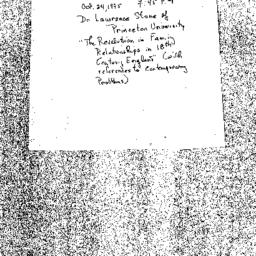 Oct. 24, 1975 7:45 P.M
Dr Lawrence Stone of
Princeton University
"The Revolution in Family
Relationships in 18th
Century England" (with
references to contemporary
Problems)